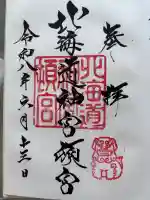 奉拝
北海道神宮頓宮
北海道
頓宮
令和八年六月十三日